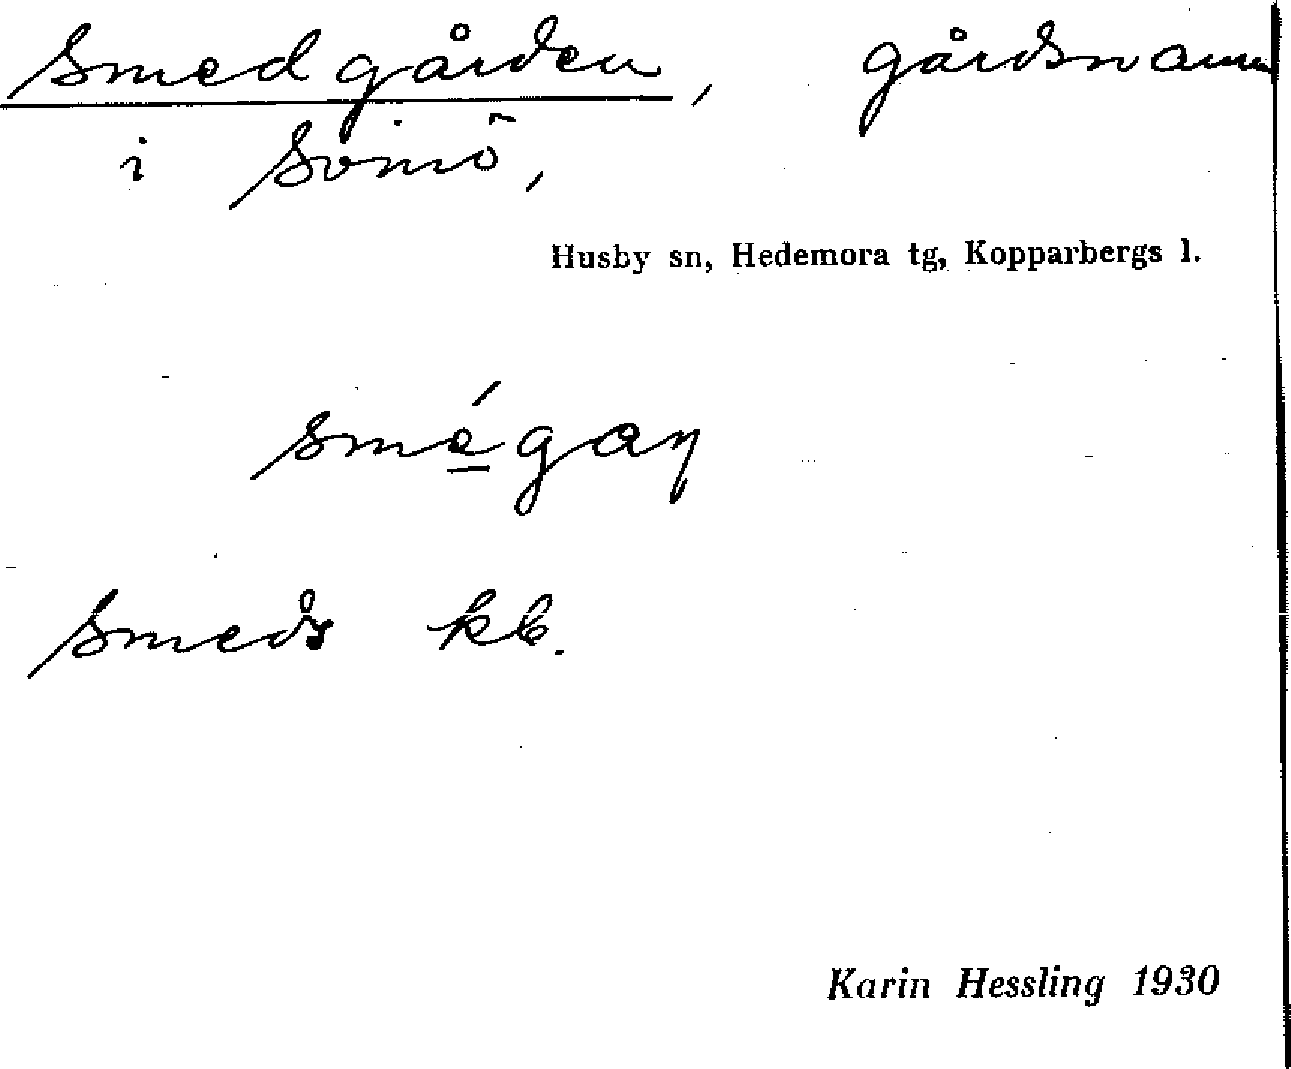 Smedgården, gårdsnamn
i Svinö,
Husby sn, Hedemora tg, Kopparbergs l.
smégaη
Smeds kb.
Karin Hessling 1930